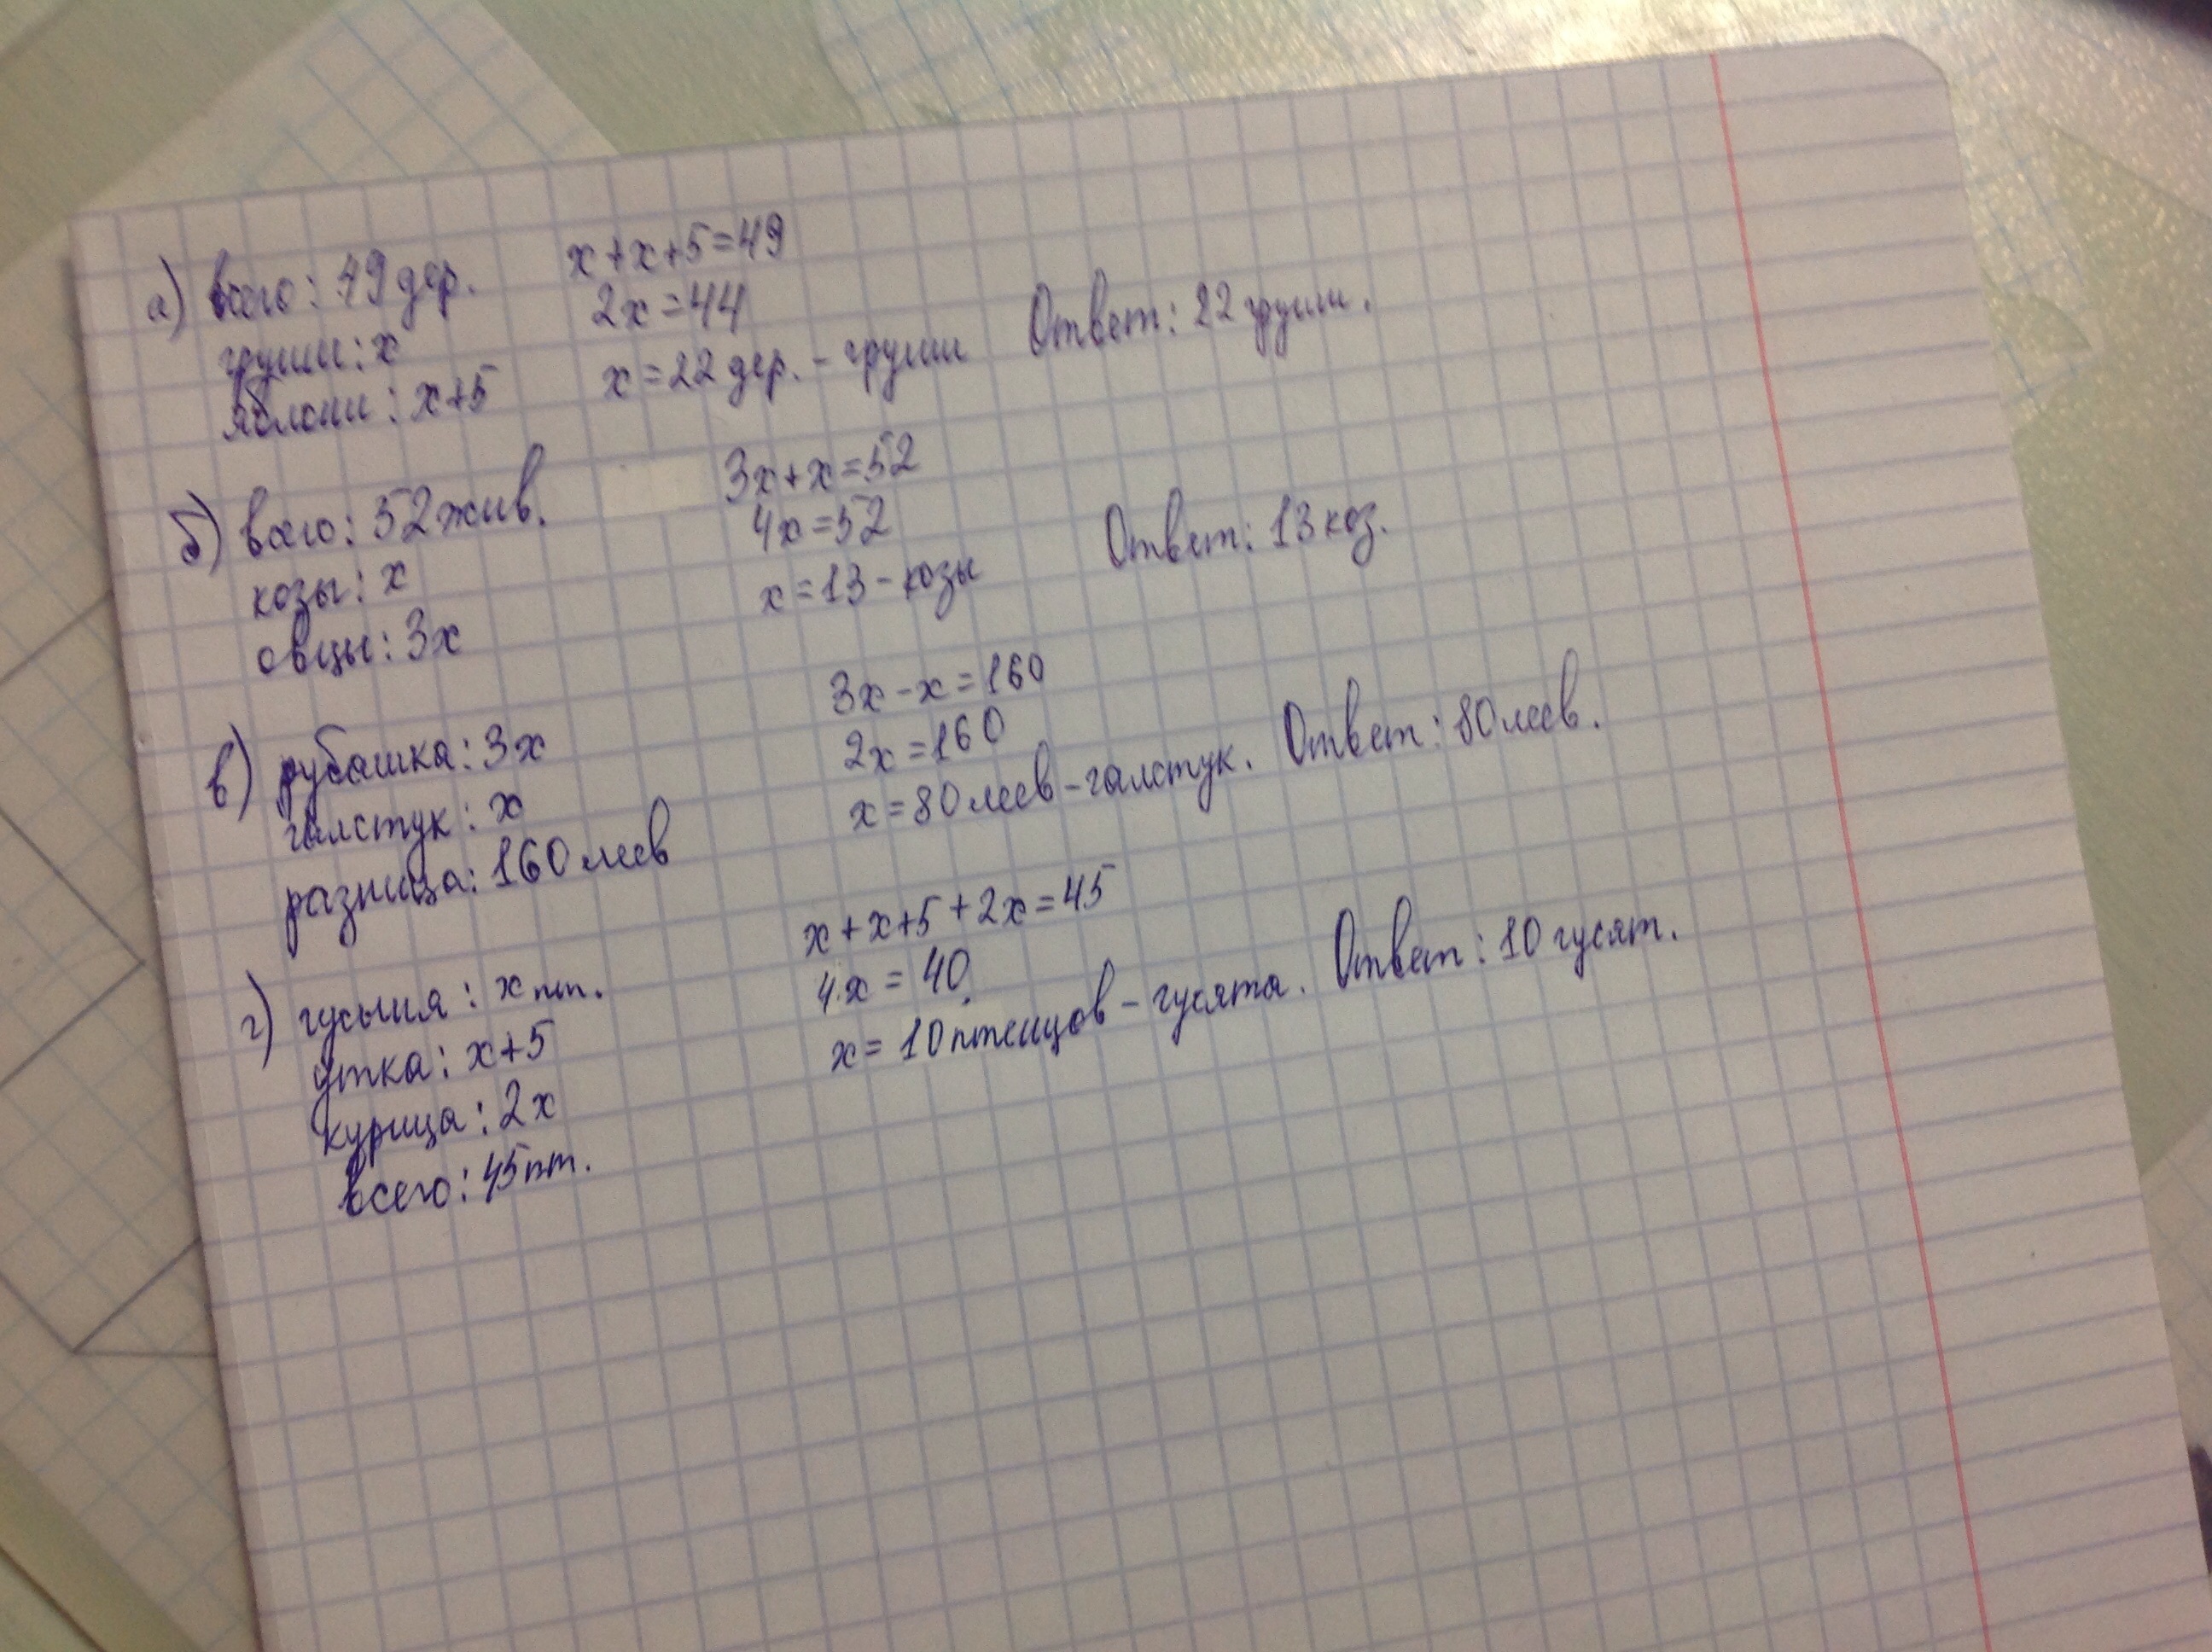 а) всего: 49 дер.
груши: х
яблони: х+5
х+х+5=49
2х=44
х=22 дер. - груши
Ответ: 22 груши.
б) всего: 52 жив.
козы: х
овцы: 3х
3х+х=52
4х=52
х=13 - козы
Ответ: 13 коз.
в) рубашка: 3х
галстук: х
разница: 160 леев
3х-х=160
2х=160
х=80 леев - галстук.
Ответ: 80 леев.
г) гусыня: х пт.
утка: х+5
курица: 2х
всего: 45 пт.
х+х+5+2х=45
4х=40
х=10 птенцов - гусята.
Ответ: 10 гусят.